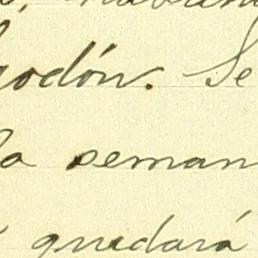 godón. Se
la seman
quedará